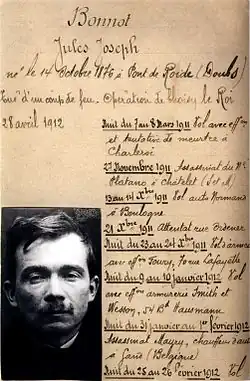 Bonnot
Jules Joseph
né le 14 Octobre 1876 à Pont de Roide (Doubs)
Tué d'un coup de feu. Opération de Choisy le Roi
28 avril 1912
Nuit du 7 au 8 Mars 1911 Vol avec effon
et tentative de meurtre à
Charleroi
27 Novembre 1911 Assassinat du Mr
Platano à Châtelet (S et M)
13 au 14 Xbre 1911 Vol auto Normand
à Boulogne
21 Xbre 1911 Attentat rue Ordener
Nuit du 23 au 24 Xbre 1911 Vol d'armes
avec eff Foury, 70 rue Lafayette
Nuit du 9 au 10 janvier 1912 Vol
avec eff armurerie Smith et
Wesson, 54 Bd Haussmann
Nuit du 31 janvier au 1er février 1912
Assassinat chauffeur d'auto
à Gand (Belgique)
Nuit du 25 au 26 Février 1912 Vol